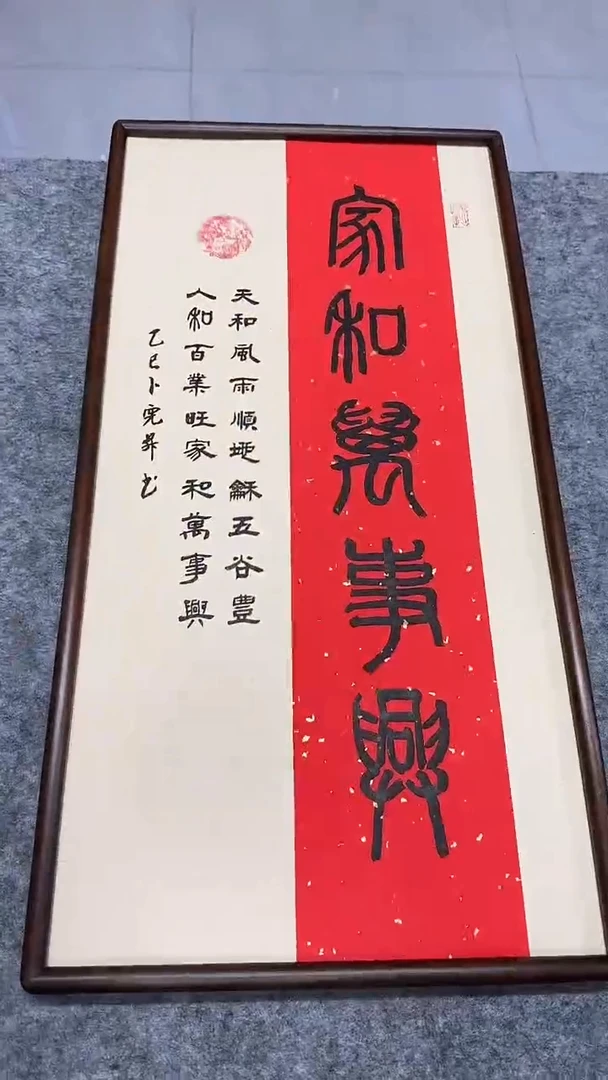 家和萬事興
天和風雨順地龢五谷豐
人和百業旺家和萬事興
乙巳卜�ㄦ昇書